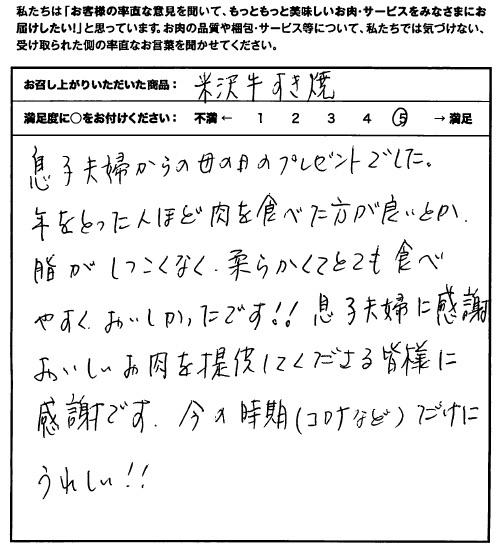 私たちは「お客様の率直な意見を聞いて、もっともっと美味しいお肉・サービスをみなさまにお
届けしたい！」と思っています。お肉の品質や梱包・サービス等について、私たちでは気づけない、
受け取られた側の率直なお言葉を聞かせてください。
お召し上がりいただいた商品： 米沢牛すき焼
満足度に○をお付けください： 不満 ← 1 2 3 4 5 → 満足
息子夫婦からの母の日のプレゼントでした。
年をとった人ほど肉を食べた方が良いとか、
脂がしつこくなく、柔らかくてとても食べ
やすく、おいしかったです!! 息子夫婦に感謝
おいしいお肉を提供してくださる皆様に
感謝です。今の時期(コロナなど)だけに
うれしい!!